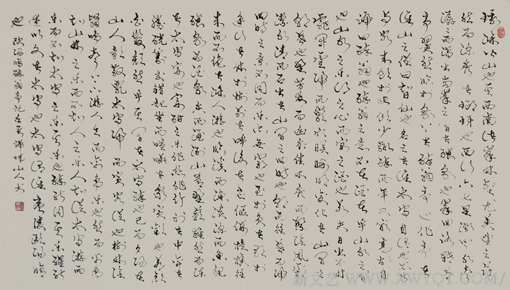 環滁皆山也其西南諸峰林壑尤美望之蔚
然而深秀者琅琊也山行六七里漸聞水聲潺
潺而瀉出于兩峰之間者釀泉也峰回路轉
有亭翼然臨於泉上者醉翁亭也作亭者
誰山之僧曰智仙也名之者誰太守自謂也太守
與客來飲於此飲少輒醉而年又最高故自
號曰醉翁也醉翁之意不在酒在乎山水之間
也山水之樂得之心而寓之酒也若夫日出而林
霏開雲歸而巖穴暝晦明變化者山間之
朝暮也野芳發而幽香佳木秀而繁陰風霜
高潔水落而石出者山間之四時也朝而往暮而歸
四時之景不同而樂亦無窮也至於負者歌於
塗行者休於樹前者呼後者應傴僂提攜往
來而不絕者滁人遊也臨溪而漁溪深而魚肥
釀泉為酒泉香而酒洌山肴野蔌雜然而前
陳者太守宴也宴酣之樂非絲非竹射者中弈者
勝觥籌交錯起坐而諠譁者衆賓歡也蒼顏
白髮頹然乎其間者太守醉也已而夕陽在
山人影散亂太守歸而賓客從也樹林陰
翳鳴聲上下遊人去而禽鳥樂也然而禽鳥
知山林之樂而不知人之樂人知從太守遊而
樂而不知太守之樂其樂也醉能同其樂醒能
述以文者太守也太守謂誰廬陵歐陽修
也